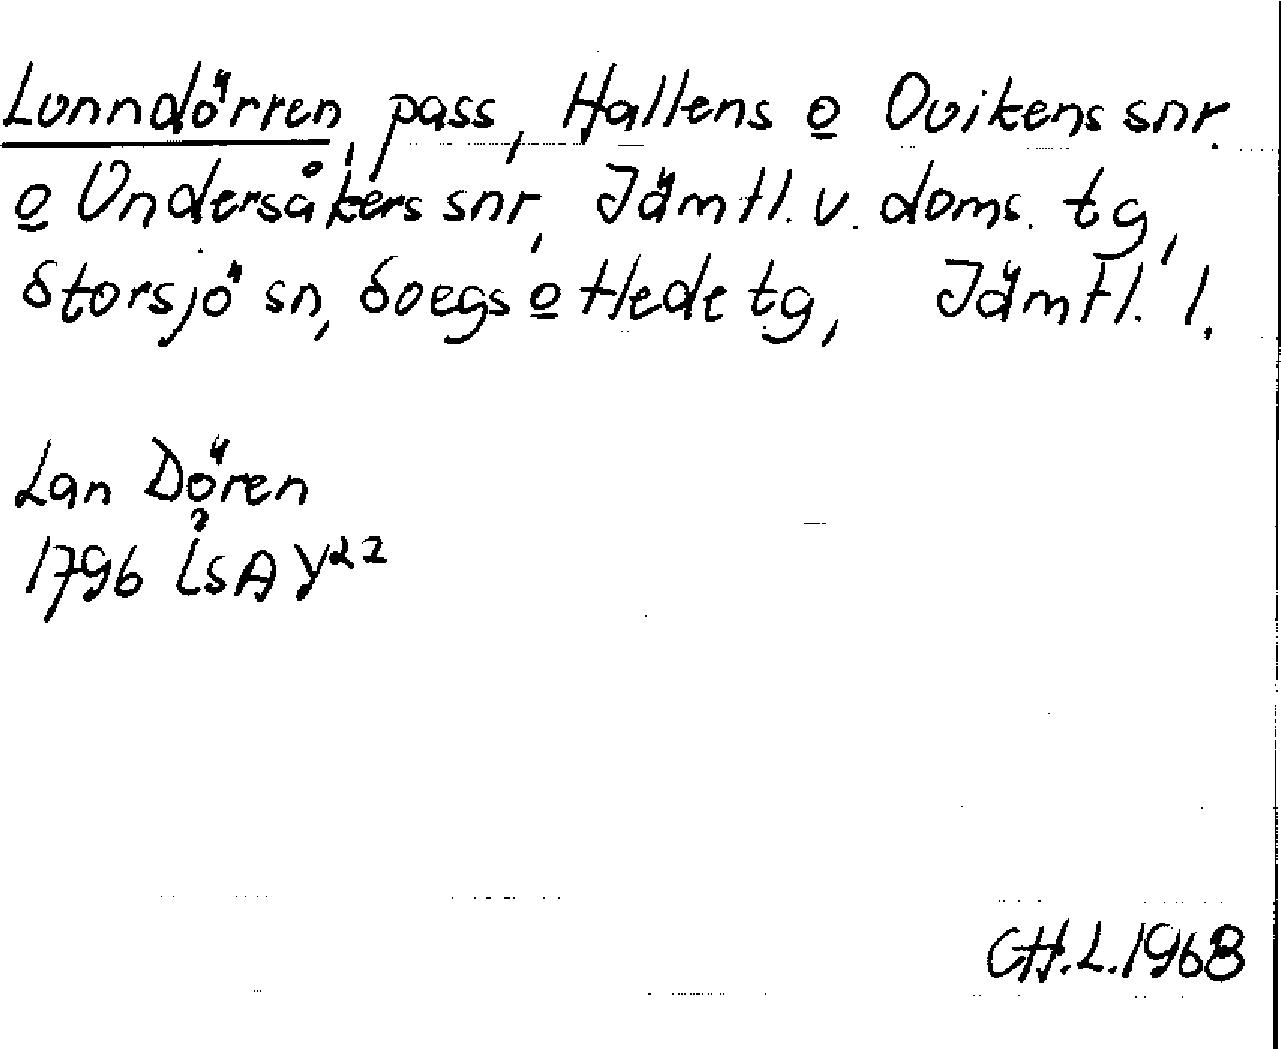 Lunndörren, pass, Hallens o Ovikens snr.
o Undersåkers snr, Jämtl. v. doms. tg,
Storsjö sn, Svegs o Hede tg, Jämtl. l.
Lan Dören
1796 LSA Y22
CH.L.1968